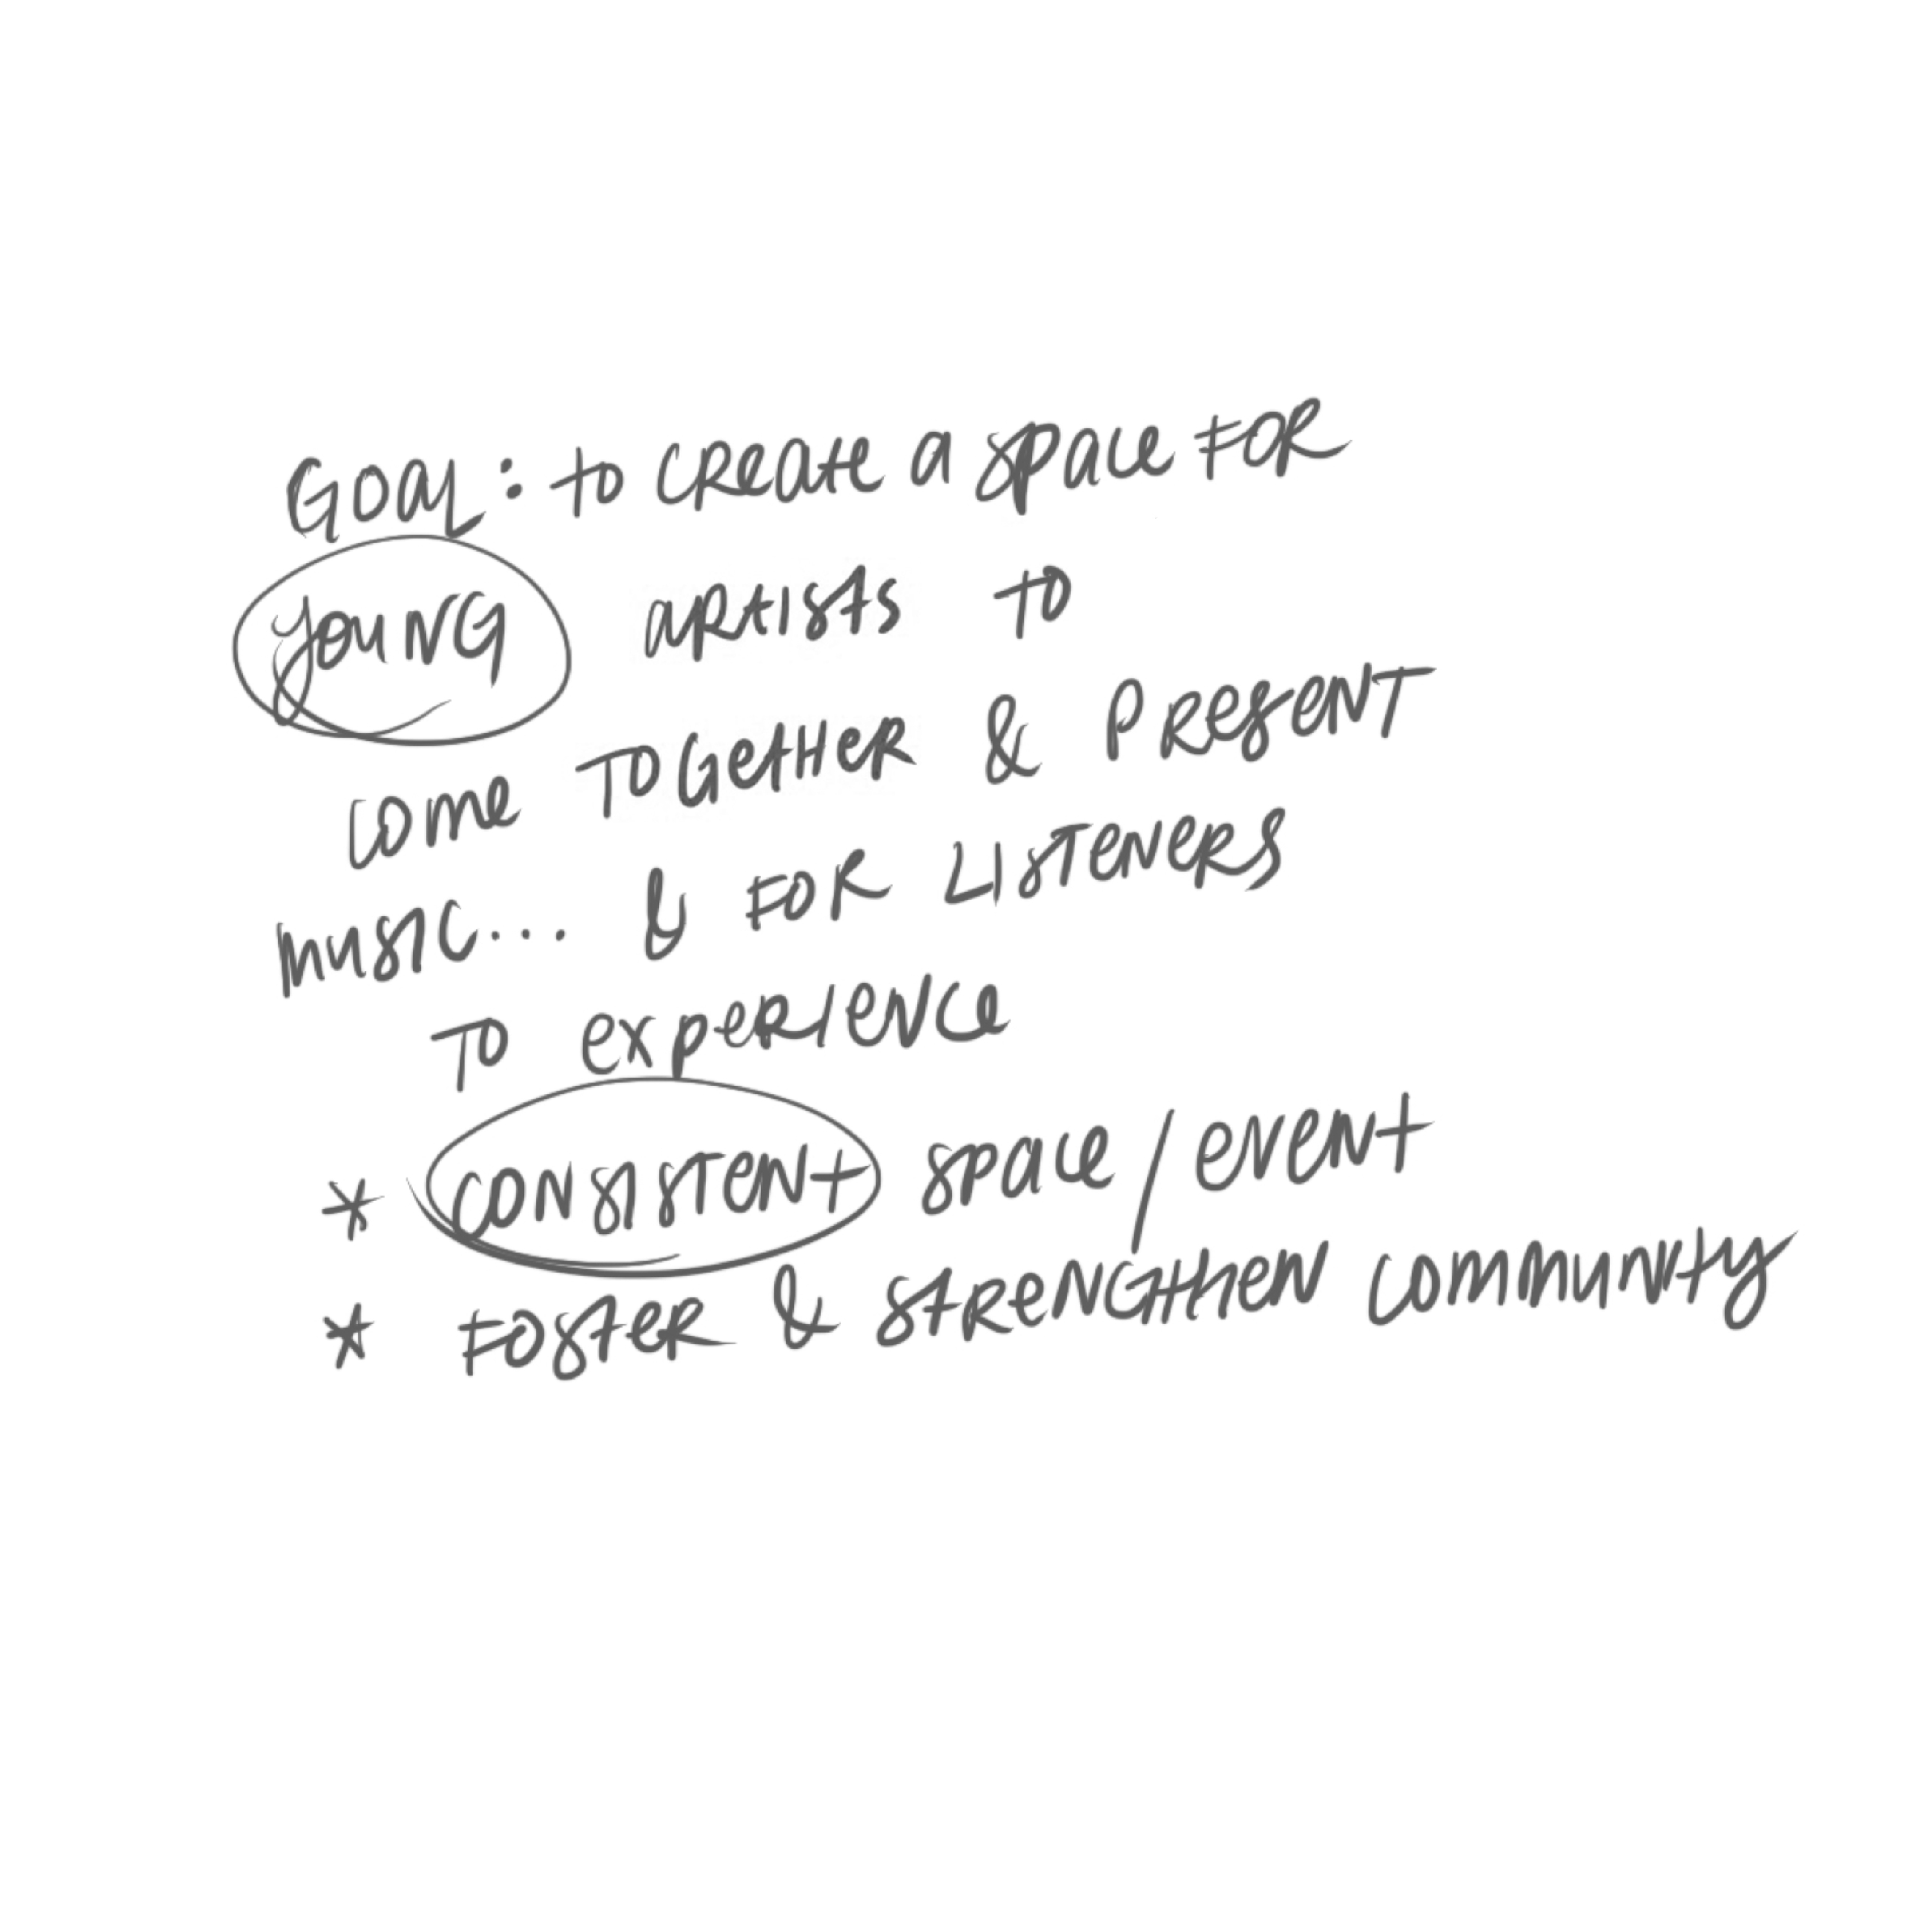 GOAL: to create a space FOR
young artists to
come together & present
music... & for listeners
to experience
* consistent space/event
* foster & strengthen community